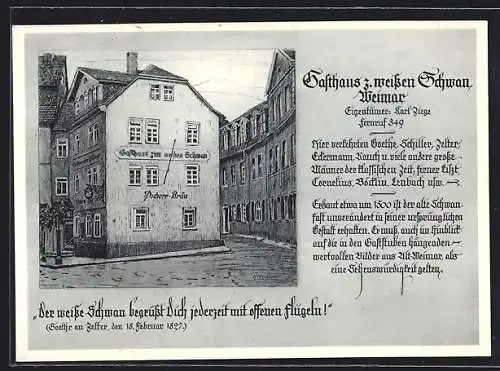 Gasthaus z. weißen Schwan
Weimar
Eigentümer: Karl Ziege
Fernruf 349
Hier verkehrten Goethe, Schiller, Zelter,
Eckermann, Rauch u. viele andere große
Männer der klassischen Zeit; ferner Liszt
Cornelius, Böcklin, Lenbach usw.
Erbaut etwa um 1500 ist der alte Schwan
fast unverändert in seiner ursprünglichen
Gestalt erhalten. Er muß, auch im Hinblick
auf die in den Gaststuben hängenden
wertvollen Bilder aus Alt-Weimar, als
eine Sehenswürdigkeit gelten.
Gasthaus zum weißen Schwan
Pschorr-Bräu
„Der weiße Schwan begrüßt Dich jederzeit mit offenen Flügeln!"
(Goethe an Zelter, den 18. Februar 1827.)